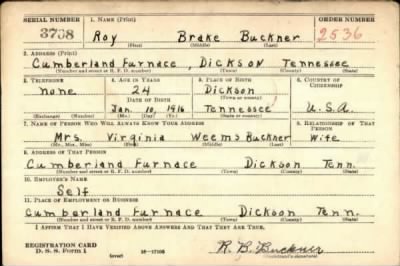 SERIAL NUMBER 1. NAME (Print) ORDER NUMBER
3738 Roy Brake Buckner 2536
(First) (Middle) (Last)
2. ADDRESS (Print)
Cumberland Furnace, Dickson Tennessee
(Number and street or R. F. D. number) (Town) (County) (State)
3. TELEPHONE 4. AGE IN YEARS 5. PLACE OF BIRTH 6. COUNTRY OF CITIZENSHIP
none 24 Dickson
(Town or county)
DATE OF BIRTH
Jan. 10, 1916 Tennessee U.S.A.
(Exchange) (Number) (Mo.) (Day) (Yr.) (State or country)
7. NAME OF PERSON WHO WILL ALWAYS KNOW YOUR ADDRESS 8. RELATIONSHIP OF THAT PERSON
Mrs. Virginia Weems Buckner Wife
(Mr., Mrs., Miss) (First) (Middle) (Last)
9. ADDRESS OF THAT PERSON
Cumberland Furnace Dickson Tenn.
(Number and street or R. F. D. number) (Town) (County) (State)
10. EMPLOYER'S NAME
Self
11. PLACE OF EMPLOYMENT OR BUSINESS
Cumberland Furnace Dickson Tenn.
(Number and street or R. F. D. number) (Town) (County) (State)
I AFFIRM THAT I HAVE VERIFIED ABOVE ANSWERS AND THAT THEY ARE TRUE.
REGISTRATION CARD
D. S. S. Form 1 (over) 16—17105 R. B. Buckner
(Registrant's signature)